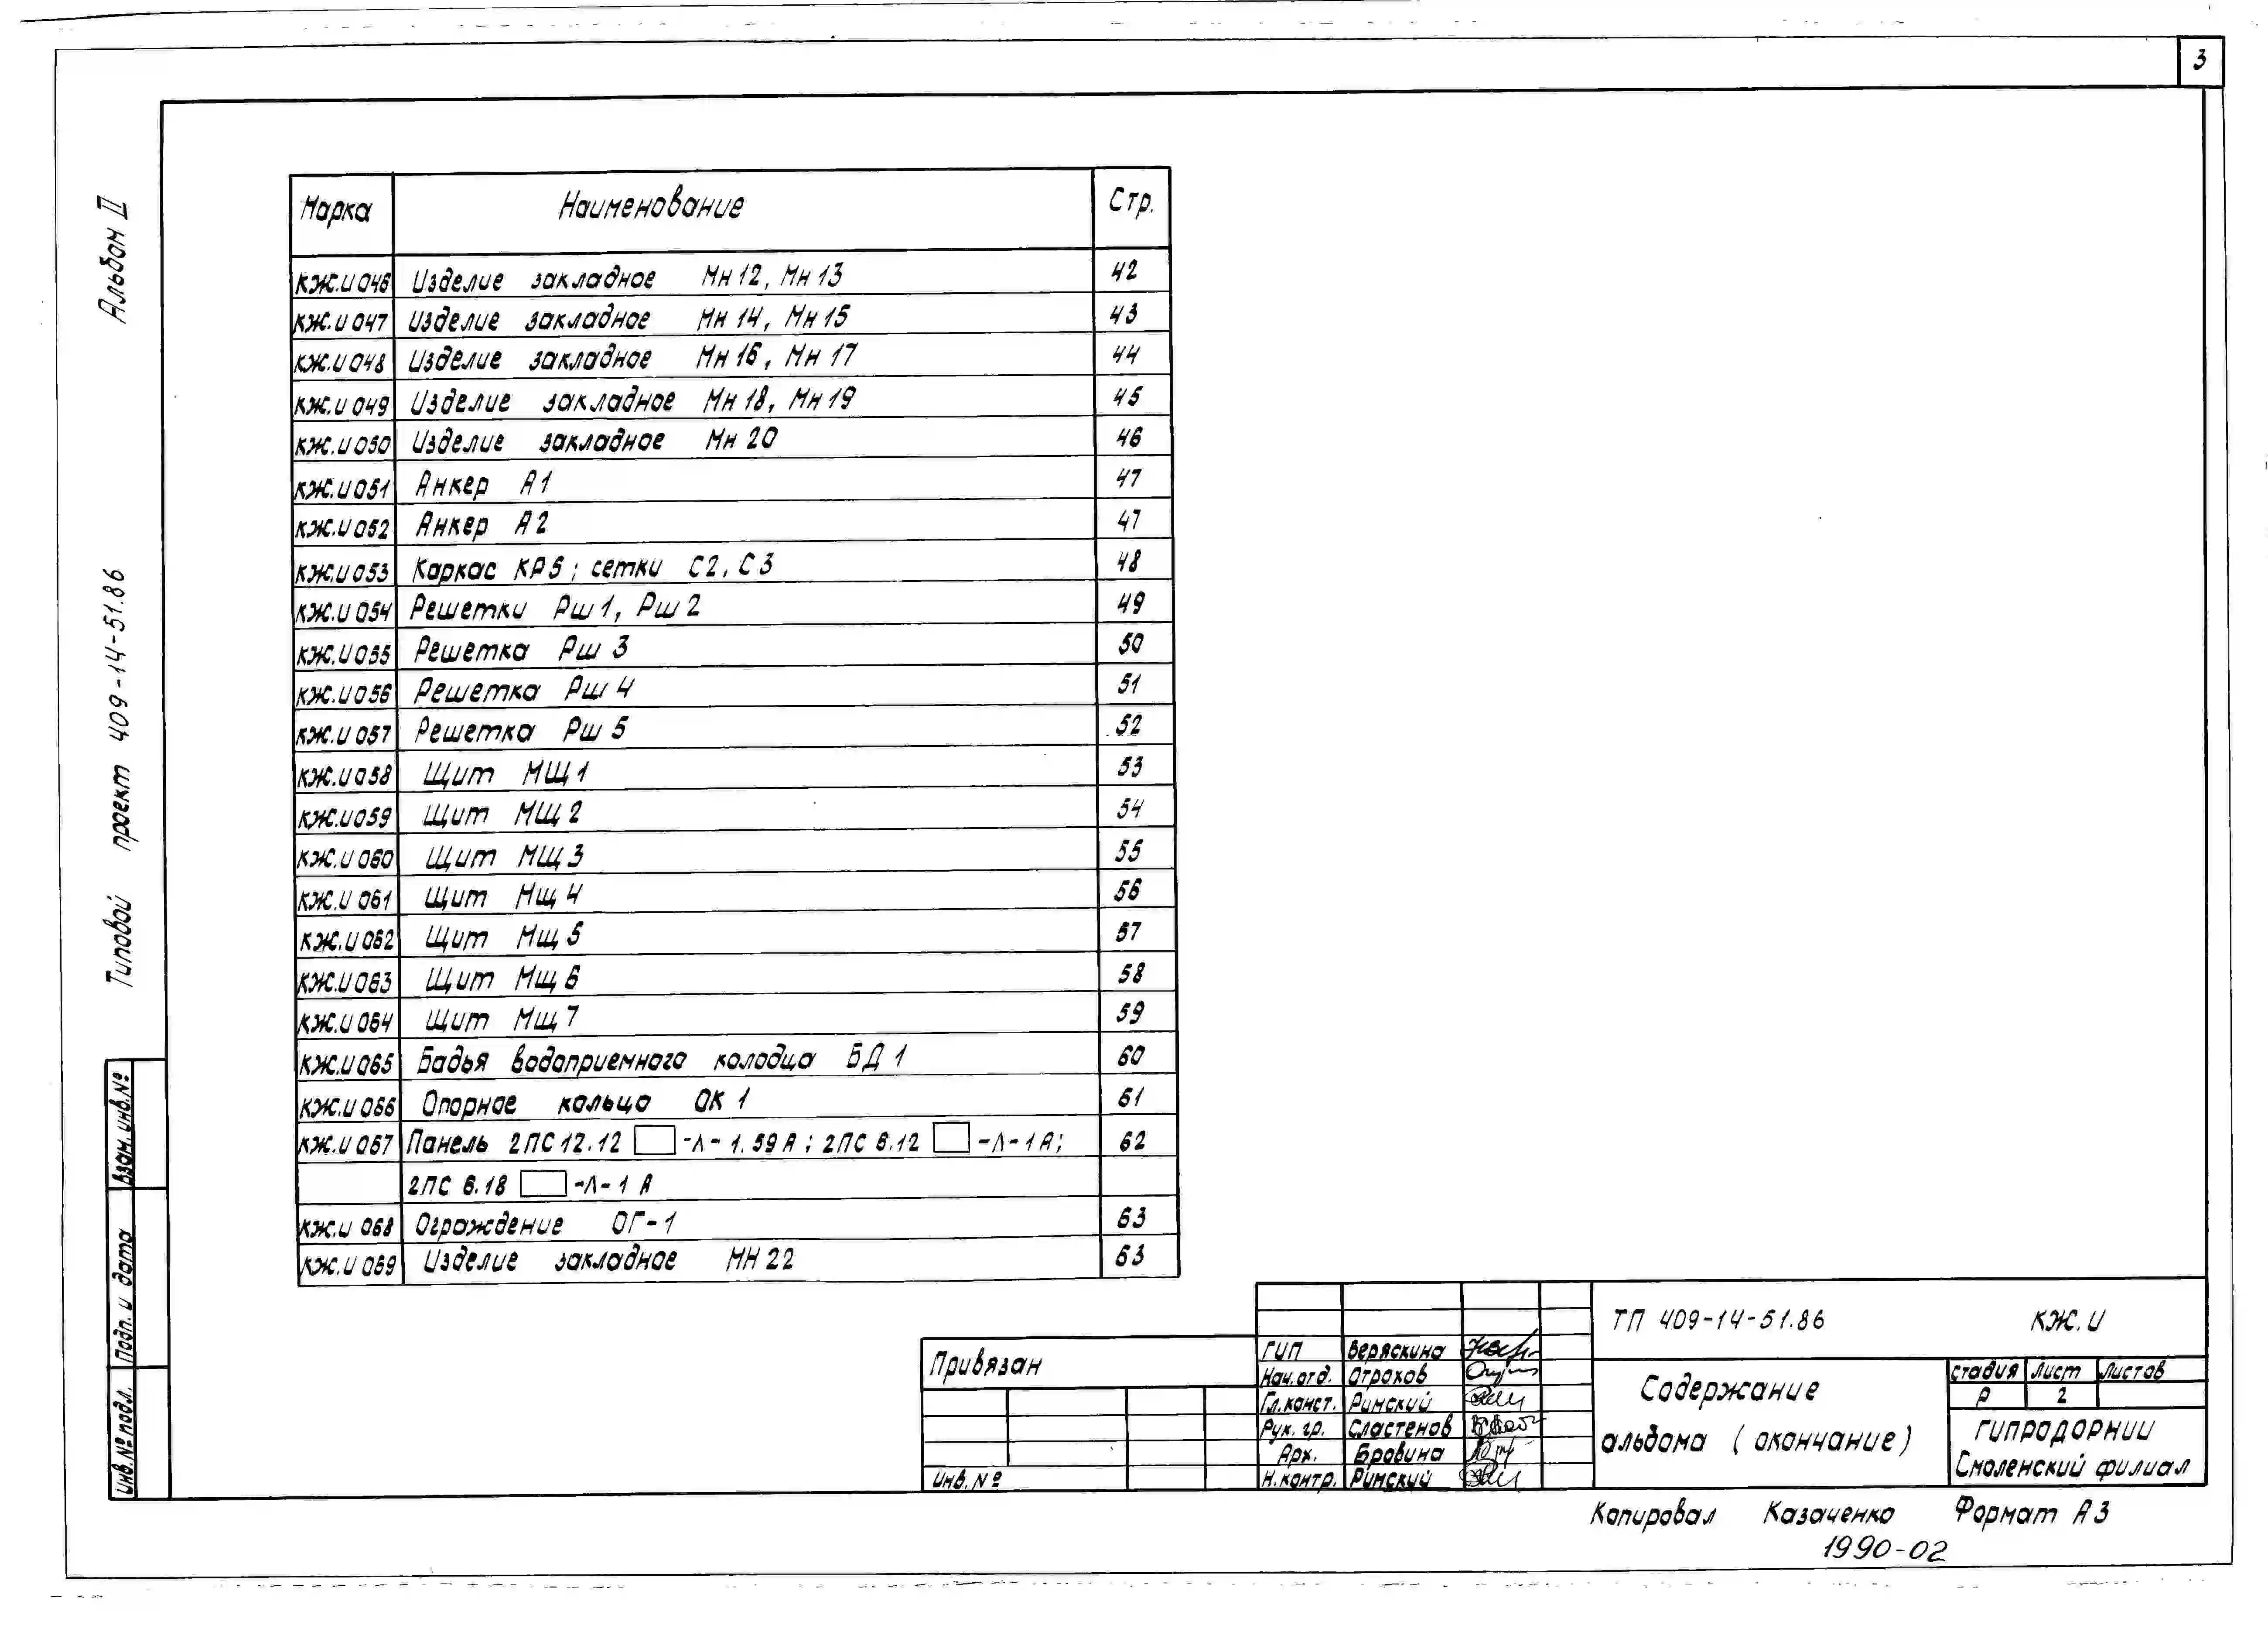 3
Альбом II
Типовой проект 409-14-51.86
Взам. инв. №
Подп. и дата
Инв. № подл.
Марка Наименование Стр.
КЖ.И 046 Изделие закладное Мн 12, Мн 13 42
КЖ.И 047 Изделие закладное Мн 14, Мн 15 43
КЖ.И 048 Изделие закладное Мн 16, Мн 17 44
КЖ.И 049 Изделие закладное Мн 18, Мн 19 45
КЖ.И 050 Изделие закладное Мн 20 46
КЖ.И 051 Анкер А1 47
КЖ.И 052 Анкер А2 47
КЖ.И 053 Каркас КР5; сетки С2, С3 48
КЖ.И 054 Решетки Рш 1, Рш 2 49
КЖ.И 055 Решетка Рш 3 50
КЖ.И 056 Решетка Рш 4 51
КЖ.И 057 Решетка Рш 5 52
КЖ.И 058 Щит МЩ 1 53
КЖ.И 059 Щит МЩ 2 54
КЖ.И 060 Щит МЩ 3 55
КЖ.И 061 Щит Мщ 4 56
КЖ.И 062 Щит Мщ 5 57
КЖ.И 063 Щит Мщ 6 58
КЖ.И 064 Щит Мщ 7 59
КЖ.И 065 Бадья водоприемного колодца БД 1 60
КЖ.И 066 Опорное кольцо ОК 1 61
КЖ.И 067 Панель 2ПС 12.12 -Л- 1.59 А; 2ПС 6.12 -Л-1А; 62
2ПС 6.18 -Л-1 А
КЖ.И 068 Ограждение ОГ-1 63
КЖ.И 069 Изделие закладное МН 22 63
Привязан
Инв. №
ГИП Веряскина
Нач. отд. Отрохов
Гл. конст. Римский
Рук. гр. Сластенов
Арх. Бровина
Н. контр. Римский
ТП 409-14-51.86 КЖ.И
Содержание
альбома (окончание)
стадия Лист Листов
Р 2
ГИПРОДОРНИИ
Смоленский филиал
Копировал Казаченко Формат А3
1990-02